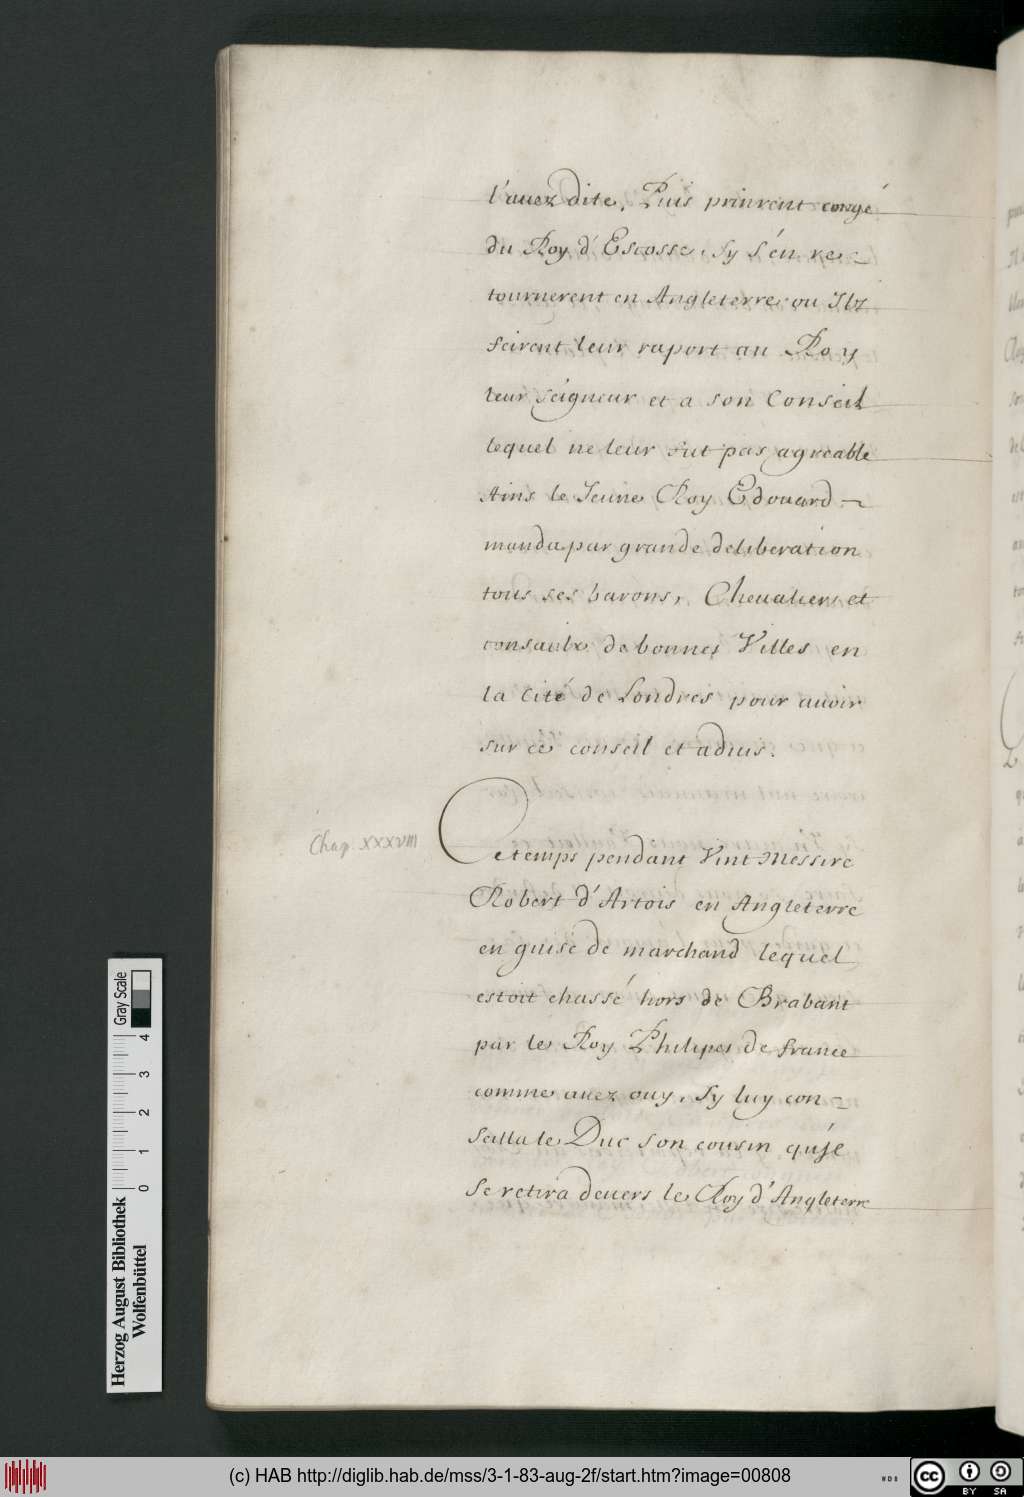 l'auez dite, Puis prinrent congé
du Roy d'Escosse, sy s'en re-
tournerent en Angleterre ou Ilz
feirent leur raport au Roy
leur seigneur et a son Conseil
lequel ne leur fut pas agreable
Ains le Jeune Roy Edouard
manda par grande deliberation
tous ses barons, Cheualiers et
consaulx de bonnes Villes en
la Cité de Londres pour auoir
sur ce conseil et aduis.
Chap. XXXVIII
Ce temps pendant Vint Messire
Robert d'Artois en Angleterre
en guise de marchand lequel
estoit chassé hors de Brabant
par le Roy Philipes de france
comme auez ouy, sy luy con-
seilla le Duc son cousin qu'il
se retira deuers le Roy d'Angleterre
Herzog August Bibliothek
Wolfenbüttel
0 1 2 3 4
Gray Scale
(c) HAB http://diglib.hab.de/mss/3-1-83-aug-2f/start.htm?image=00808
cc BY SA